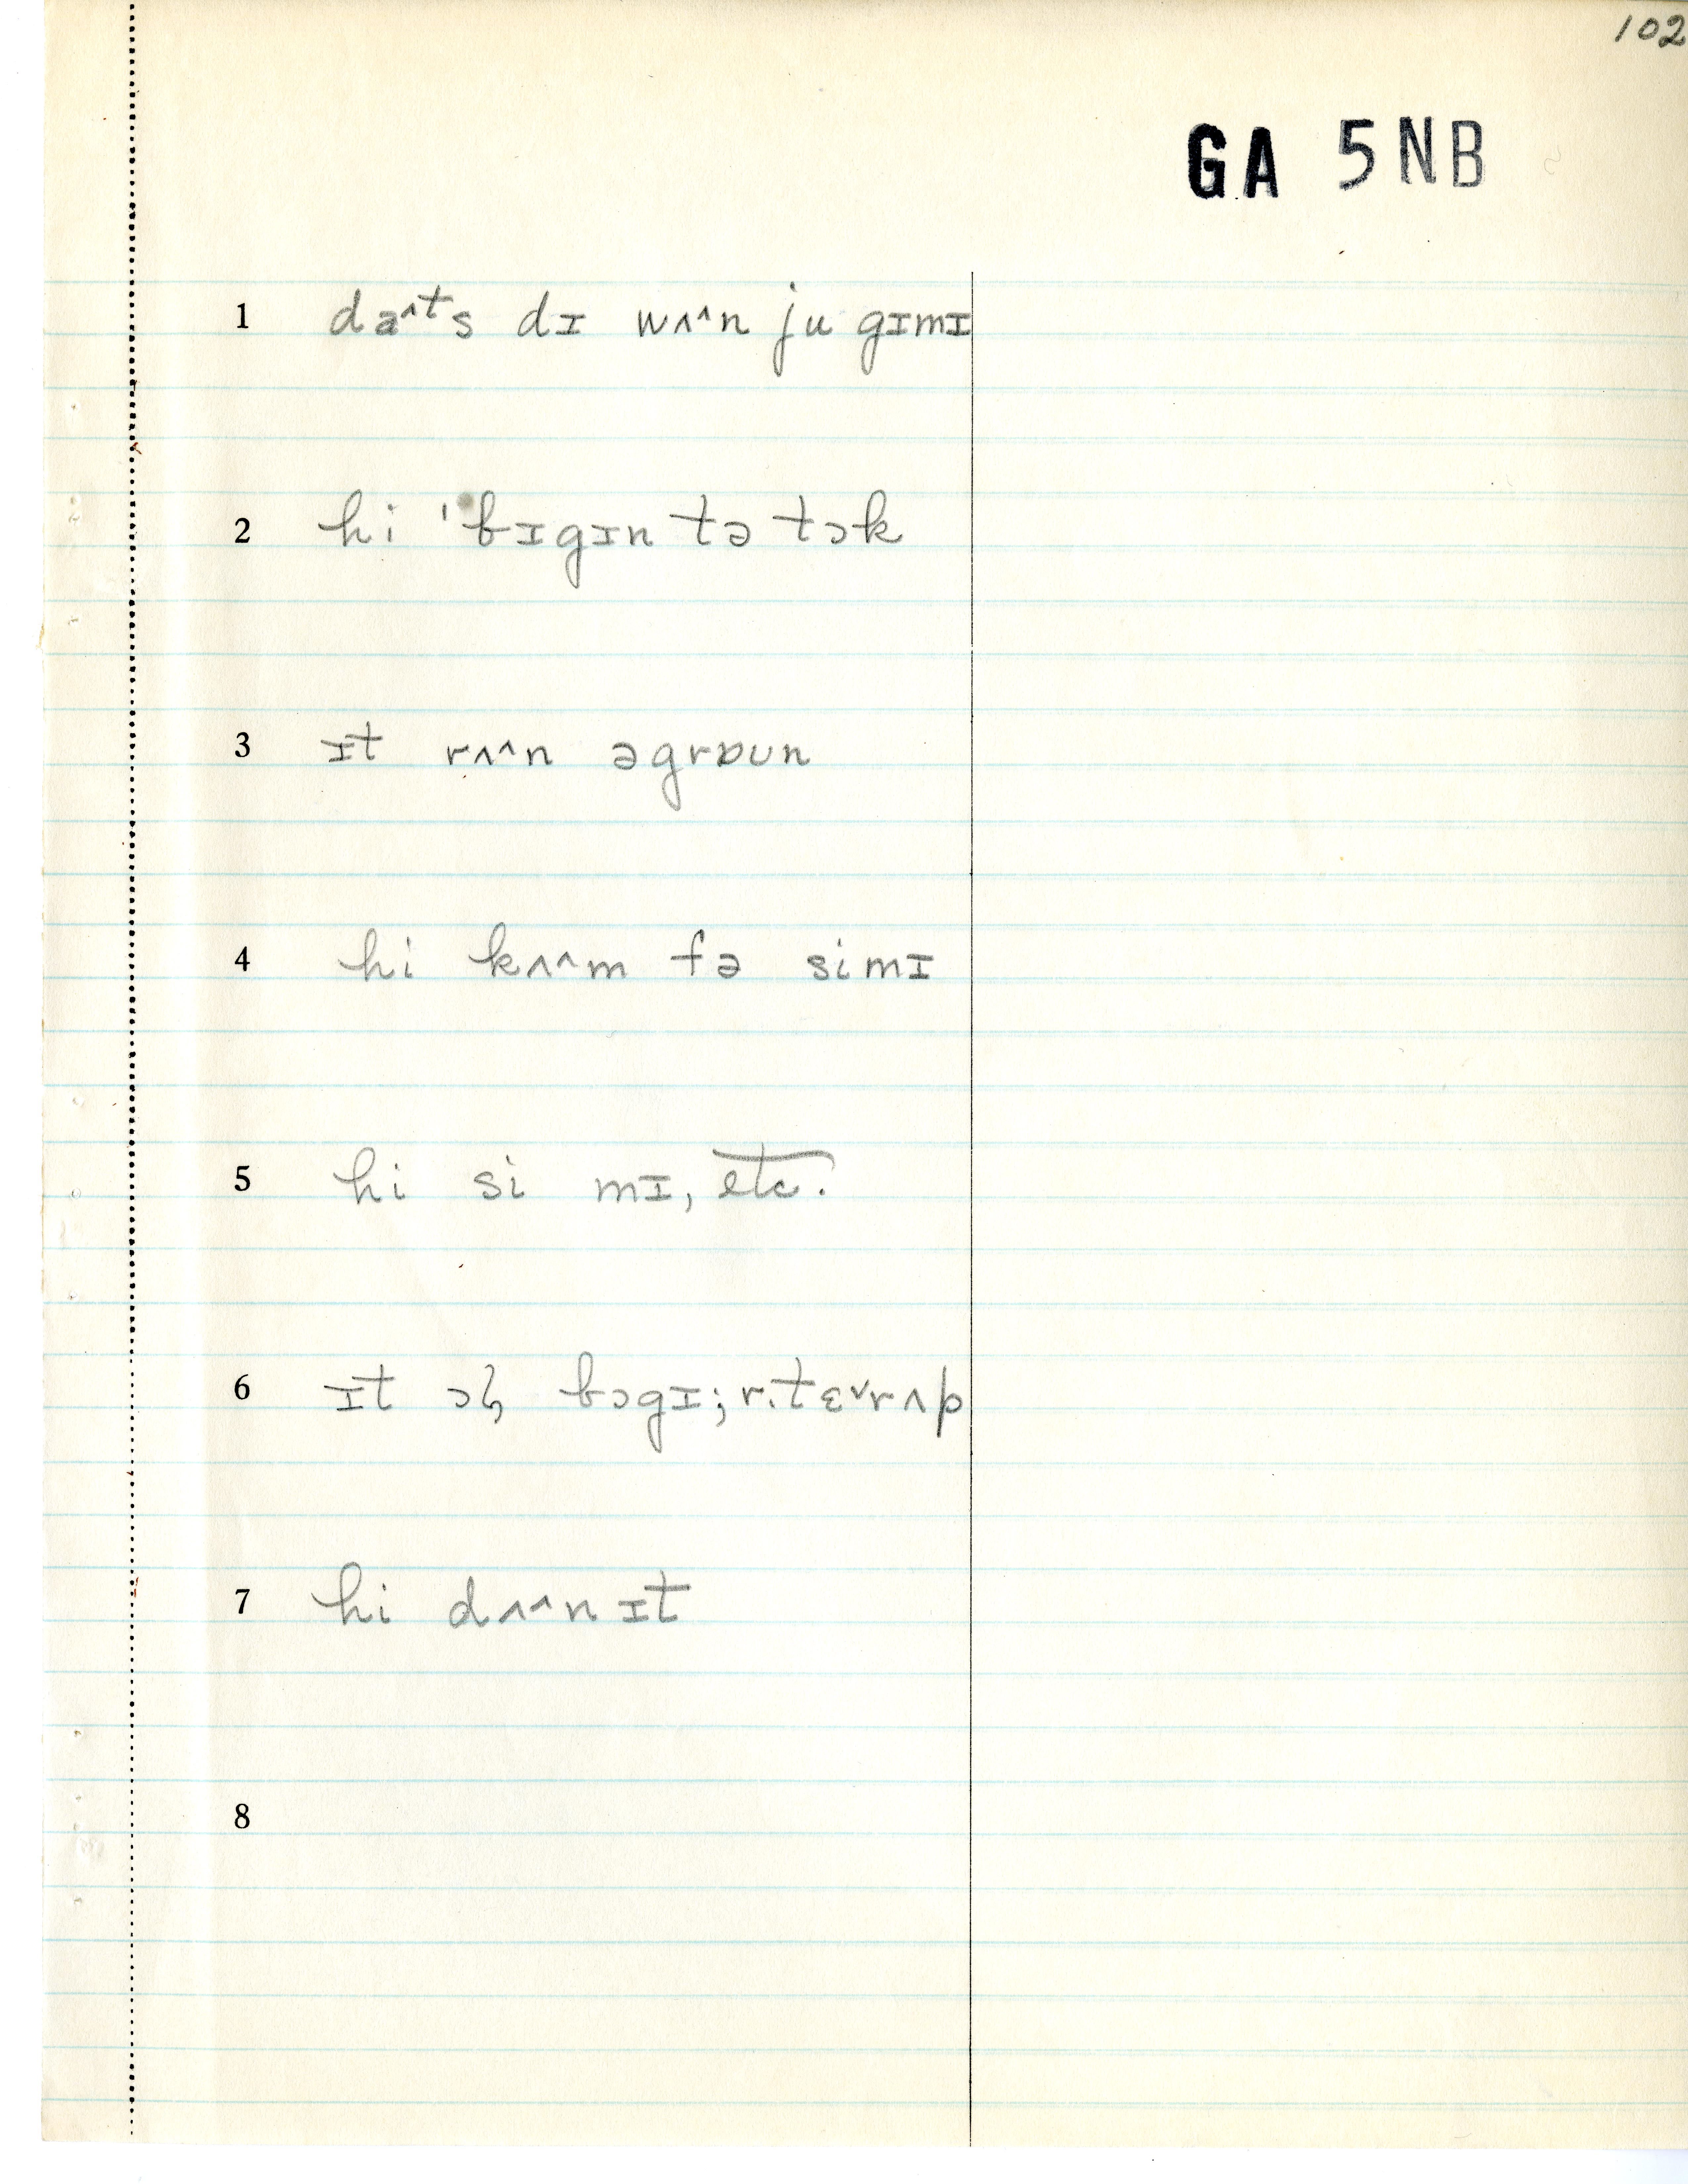 102
GA 5NB
1 da^ts dɪ wʌ^n ju gɪmɪ
2 hi 'bɪgɪn tə tɔk
3 ɪt rʌ^n əgrɒun
4 hi kʌ^m fə simɪ
5 hi si mɪ, etc.
6 ɪt ɔl̩ bɔgɪ; r.tɛˇrʌp
7 hi dʌ^n ɪt
8